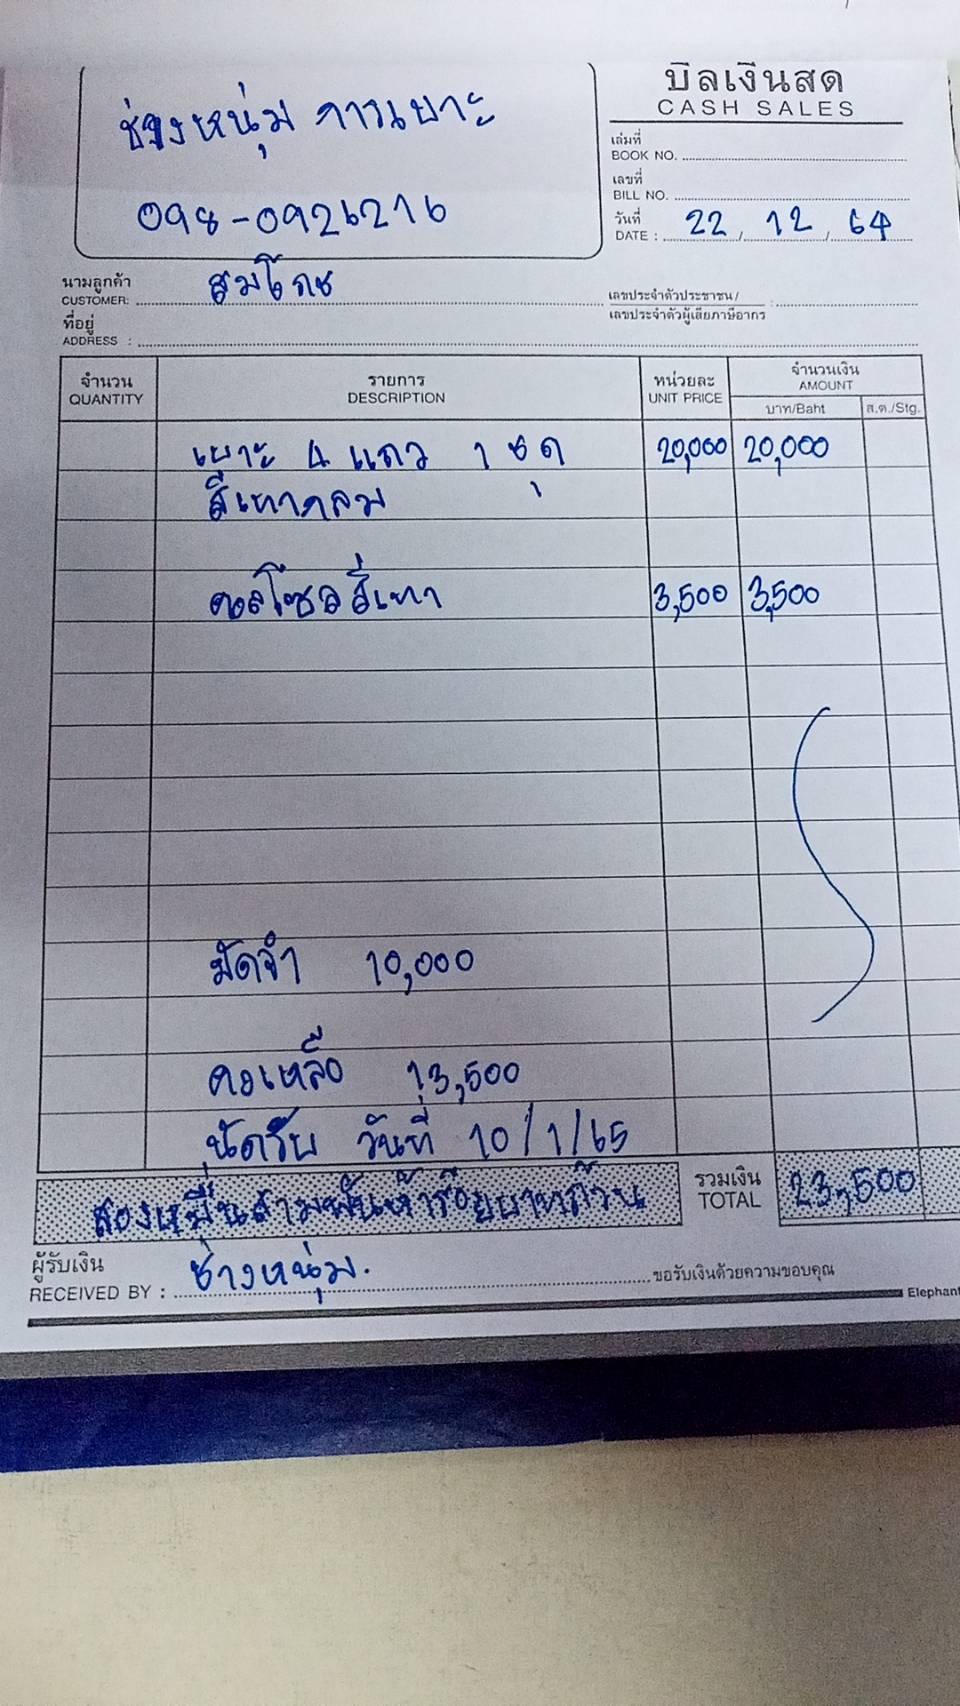 บิลเงินสด
CASH SALES
ช่างหนุ่ม การเบาะ
098-0926216
เล่มที่
BOOK NO.
เลขที่
BILL NO.
วันที่
DATE : 22 / 12 / 64
นามลูกค้า
CUSTOMER: สมโภช
เลขประจำตัวประชาชน/
เลขประจำตัวผู้เสียภาษีอากร :
ที่อยู่
ADDRESS :
จำนวน QUANTITY รายการ DESCRIPTION หน่วยละ UNIT PRICE จำนวนเงิน AMOUNT
บาท/Baht ส.ต./Stg.
เบาะ 4 แถว 1 ชุด 20,000 20,000
สีเทากลม
คอลโซลสีเทา 3,500 3,500
มัดจำ 10,000
คงเหลือ 13,500
นัดรับ วันที่ 10/1/65
สองหมื่นสามพันห้าร้อยบาทถ้วน รวมเงิน TOTAL 23,500
ผู้รับเงิน
RECEIVED BY : ช่างหนุ่ม. ขอรับเงินด้วยความขอบคุณ
Elephant